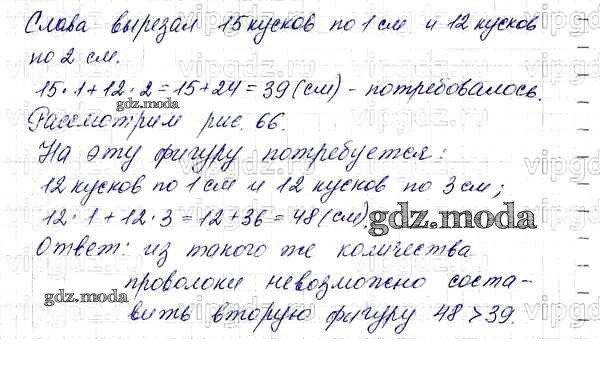 Слава вырезал 15 кусков по 1 см и 12 кусков
по 2 см.
15·1+12·2=15+24=39 (см) - потребовалось.
gdz.moda
Рассмотрим рис. 66.
На эту фигуру потребуется:
12 кусков по 1 см и 12 кусков по 3 см;
12·1+12·3=12+36=48 (см).
gdz.moda
Ответ: из такого же количества
проволоки невозможно соста-
gdz.moda
вить вторую фигуру 48>39.